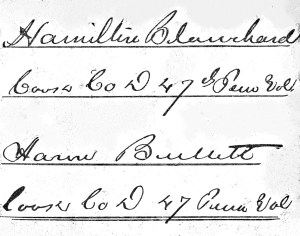 Hamilton Blanchard
Coosa Co D 47th Penn Vols
Aaron Bullett
Coosa Co D 47 Penn Vol